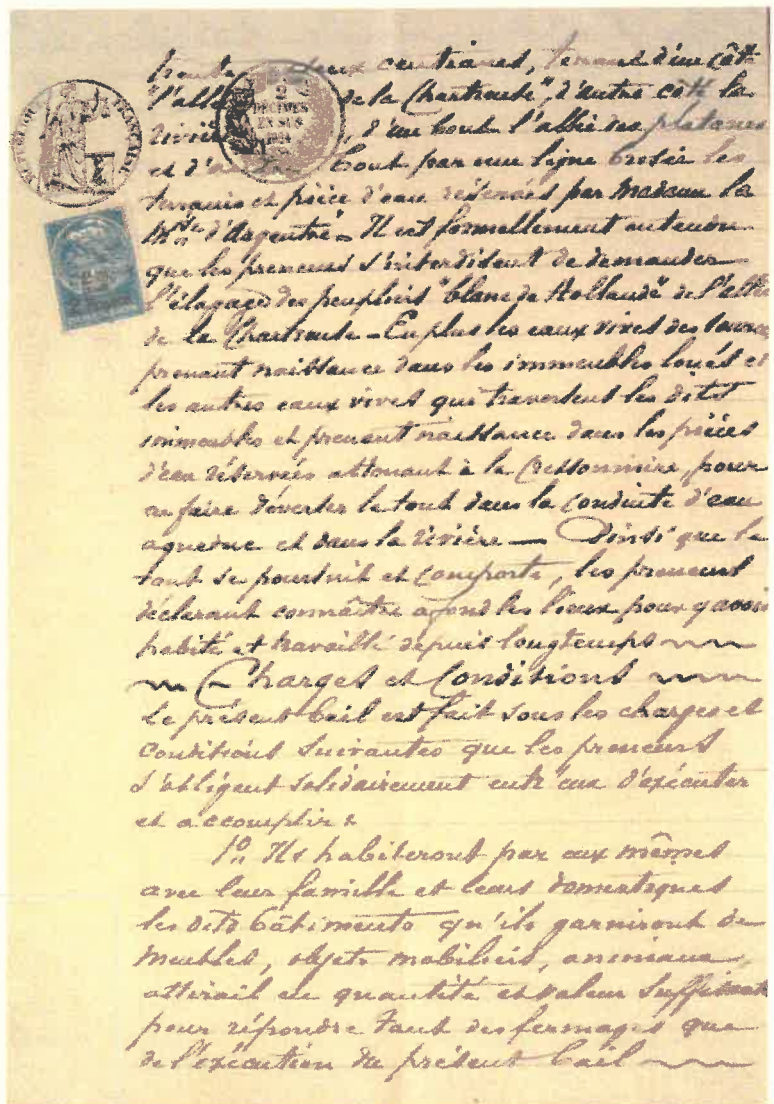 trente deux centiares, tenant d'un côté
"l'allée de la Chartreuse", d'autre coté la
rivière, d'un bout l'allée des platanes
et d' bout par une ligne brisée les
et pièce d'eau réservées par Madame la
Mise d'Argentré – Il est formellement entendu
que les preneurs s'interdisent de demander
l'élagage des peupliers "blanc de Hollande" de l'allée
de la Chartreuse – En plus les eaux vives des
prenant naissance dans les immeubles loués et
les autres eaux vives que traversent les dits
immeubles et prenant naissance dans les pièces
d'eau réservées attenant à la Cressonnière, pour
en faire déverser le tout dans la conduite d'eau
aqueduc et dans la rivière — Ainsi que le
tout se poursuit et comporte, les preneurs
déclarant connaître à fond les lieux pour y avoir
habité et travaillé depuis longtemps
Charges et Conditions
Le présent bail est fait sous les charges et
conditions suivantes que les preneurs
s'obligent solidairement entr eux d'exécuter
et accomplir :
1o Ils habiteront par eux mêmes
avec leur famille et leurs domestiques
les dits bâtiments qu'ils garniront de
meubles, objets mobiliers, animaux,
attirail en quantité et valeur suffisante
pour répondre tant des fermages que
de l'exécution du présent bail
RÉPUBLIQUE FRANÇAISE
2
DÉCIMES
EN SUS